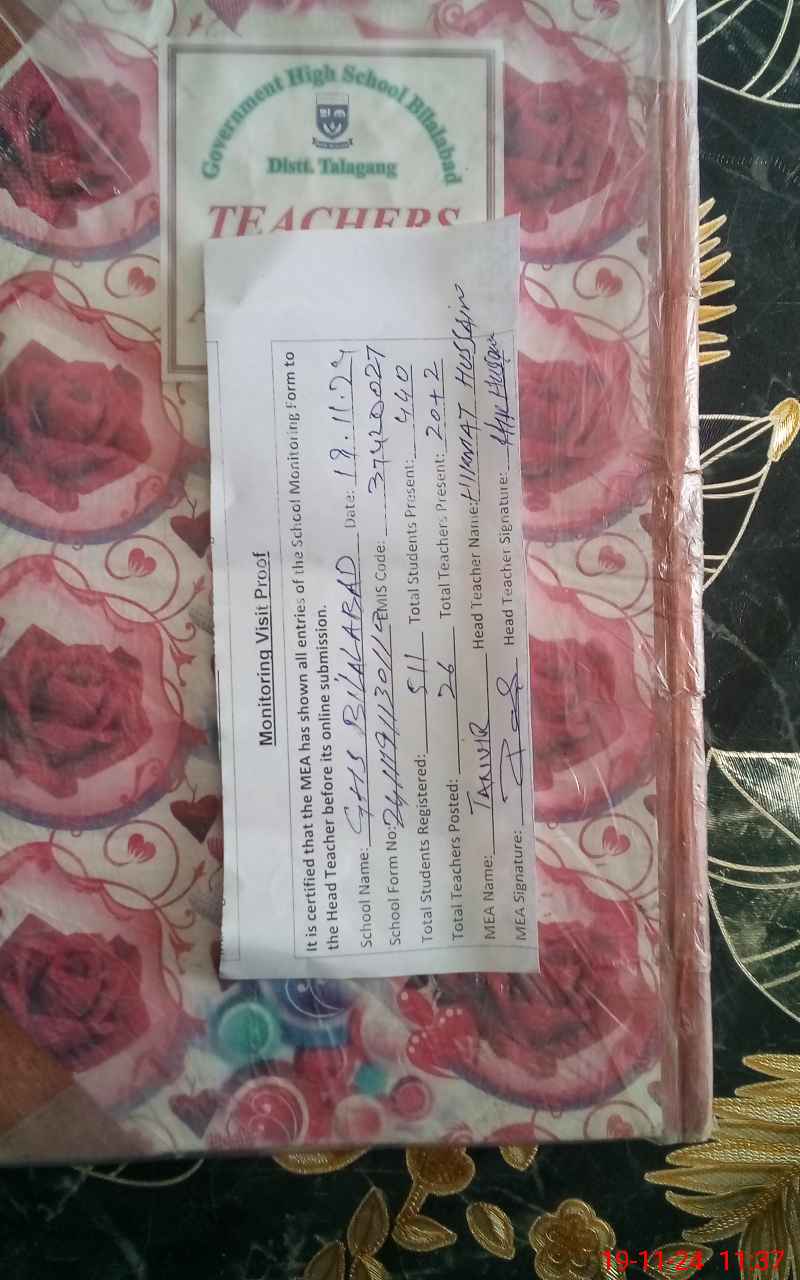 Government High School Bilalabad
Distt. Talagang
TEACHERS
Monitoring Visit Proof
It is certified that the MEA has shown all entries of the School Monitoring Form to
the Head Teacher before its online submission.
School Name: GHS BILALABAD Date:
School Form No: EMIS Code: 37420027
Total Students Registered: 511 Total Students Present: 440
Total Teachers Posted: 26 Total Teachers Present: 20+2
MEA Name: TANVIR Head Teacher Name: HIKMAT HUSSAIN
MEA Signature: Head Teacher Signature:
19-11-24 11:37